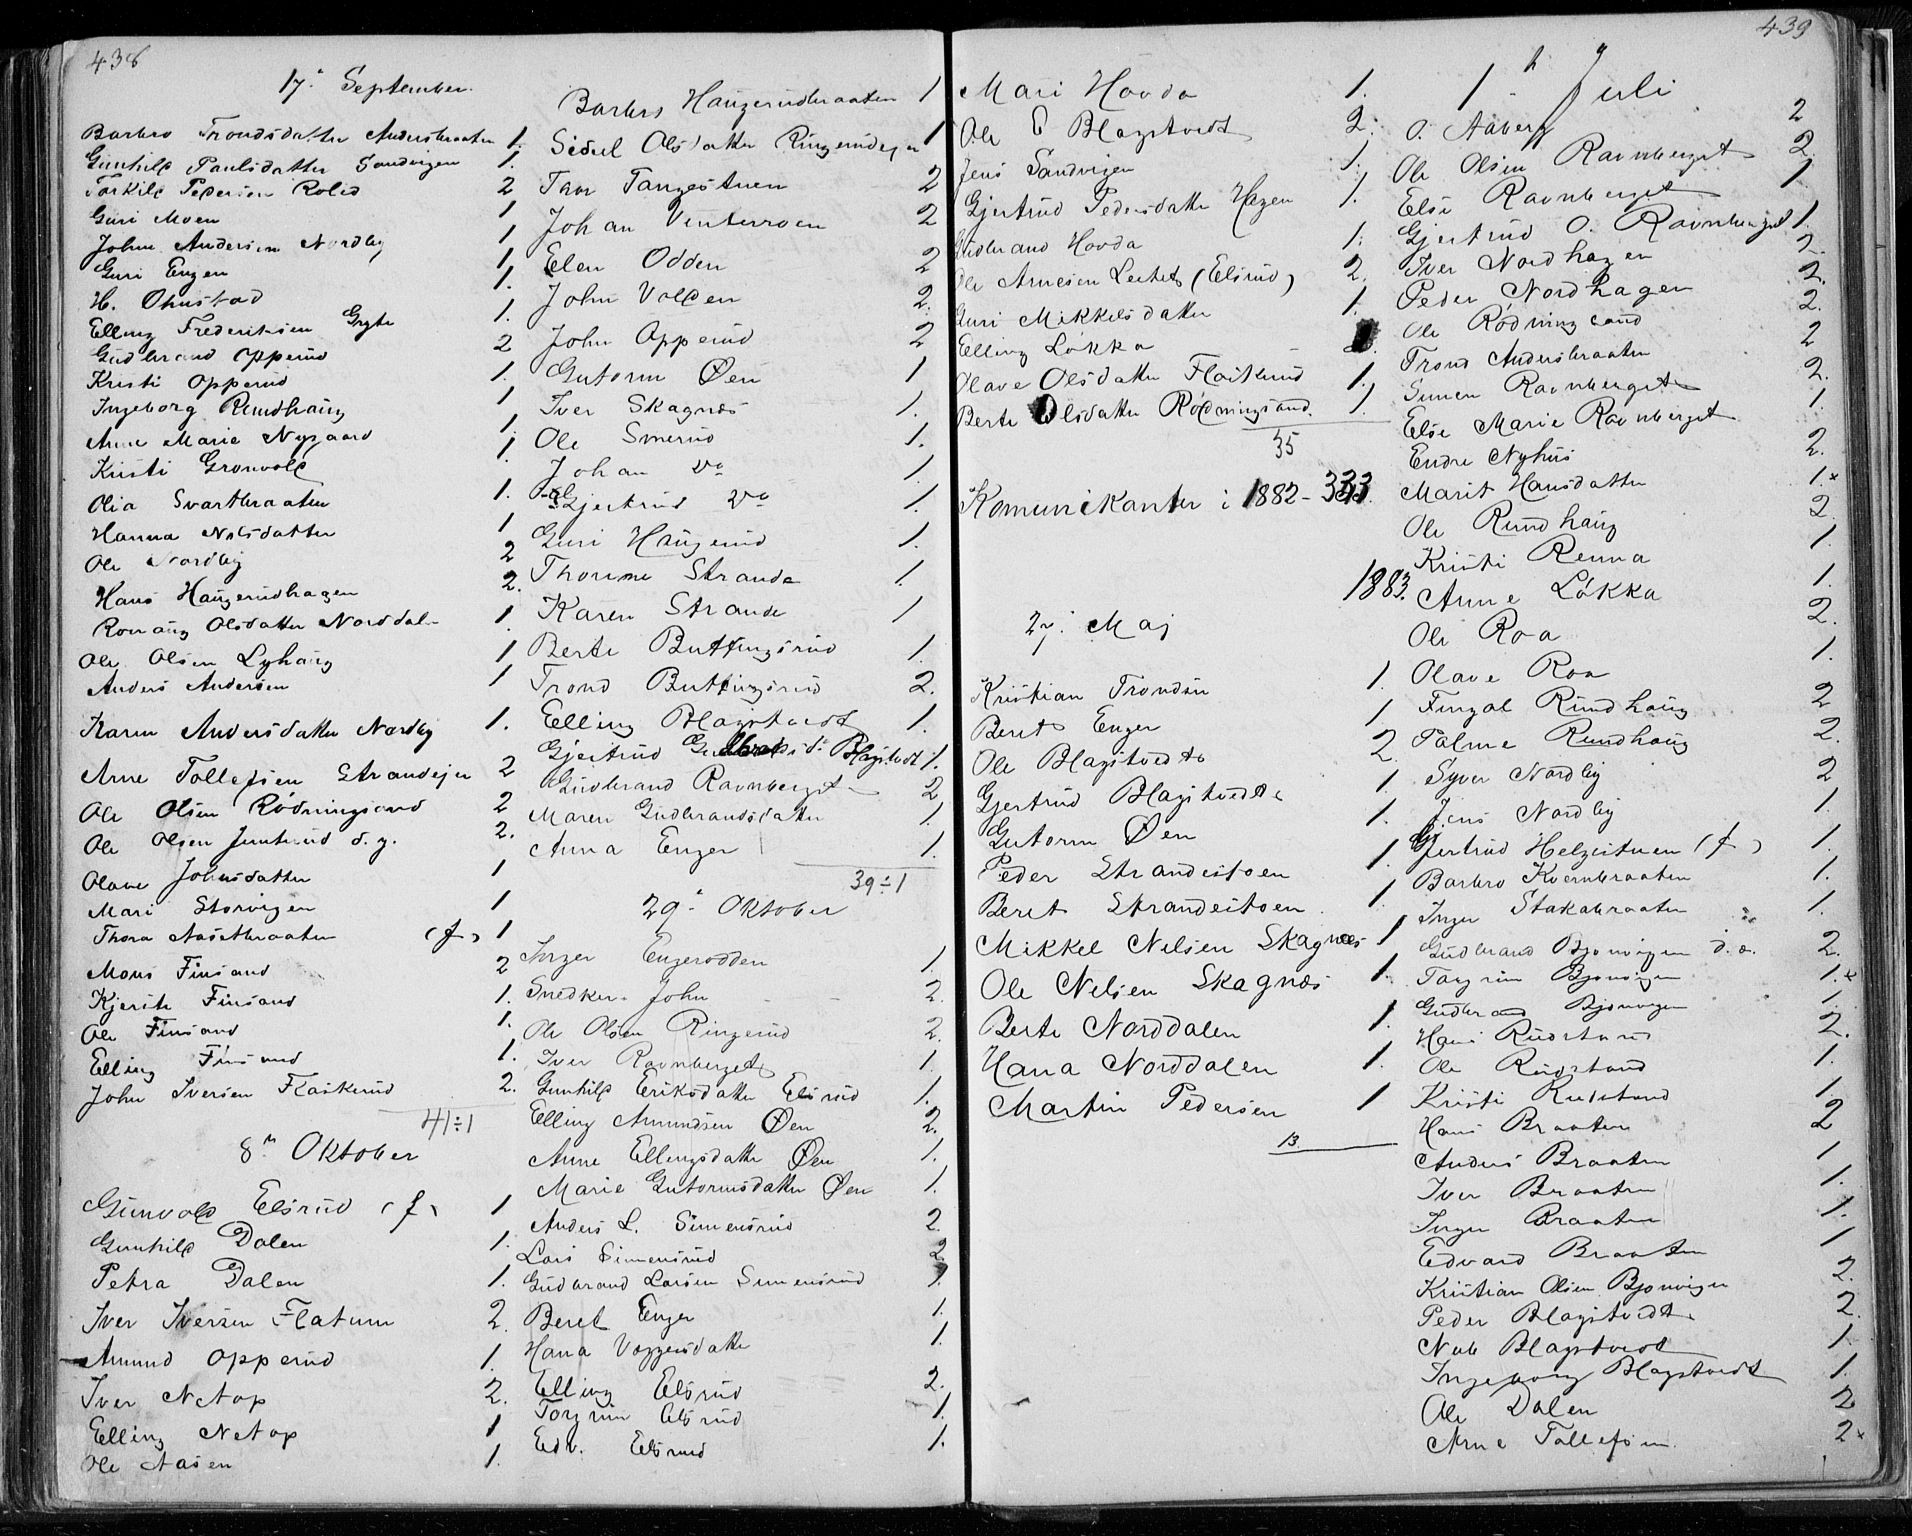 438
17. September.
Barbro Trondsdatter Andersbraaten 1.
Gunhild Paulsdatter Sandvigen 1.
Torkild Pedersen Rolid 2
Guri Moen 1
John Andersen Nordby 1
Guri Enger 1.
H. Ohnstad 1.
Elling Frederiksen Gryte 1.
Gudbrand Opperud 2
Kristi Opperud 1.
Ingeborg Rundhaug 1
Anne Marie Nygaard 1.
Kristi Gronvold 1
Olia Svartbraaten 1.
Hanna Nilsdatter 1
Ole Nordby 2
Hans Haugerudhagen 2.
Ronaug Olsdatter Norddal 1.
Ole Olsen Lyhaug 1
Anders Andersen 1
Karen Andersdatter Nordby 1.
Arne Tollefsen Strandejer 2
Ole Olsen Rødningsand 2
Ole Olsen Juntrud d. y. 2.
Olave Johnsdatter 1
Mari Storvigen 1
Thora Aasetbraaten (f) 1
Mons Finsand 2
Kjersti Finsand 1.
Ole Finsand 1.
Elling Finsand 1.
John Iversen Flaskerud 2.
41÷1
8de Oktober
Gunvold Elsrud (f) 1
Gunhild Dalen 1.
Petra Dalen 1.
Iver Iversen Flatum 2.
Amund Opperud 1.
Iver Netop 2.
Elling Netop 1
Ole Aasen 1.
Barbro Haugerudbraaten 1
Sidsel Olsdatter Ringerudejer 1
Thor Tangestuen 2
Johan Vinterroen 2
Elen Odden 2
John Volden 2.
John Opperud 2
Gutorm Øen 1
Iver Skagnæs 1.
Ole Smerud 1.
Johan do 1.
Gjertrud do 1.
Guri Haugerud 1.
Thorine Strande 1.
Karen Strande 1
Berte Buttingsrud 1.
Trond Buttingsrud 2.
Elling Blagstvedt 1.
Gjertrud Gudbrandsd. Blagstvedt 1.
Gudbrand Ravnberget 2
Maren Gudbrandsdatter 1.
Anna Enger 1.
39÷1
29de Oktober
Inger Engerodden 1.
Snedker-John 2.
Ole Olsen Ringerud 2.
Iver Ravnberget 1.
Gunhild Eriksdatter Elsrud 1.
Elling Amundsen Øen 2.
Anne Ellingsdatter Øen 1.
Marie Gutormsdatter Øen 1.
Anders L. Simensrud 2
Lars Simensrud 2
Gudbrand Larsen Simensrud 1.
Beret Enger 1.
Hana Voggersdatter 1.
Elling Elsrud 2.
Torgrim Elsrud 1.
Edv. Elsrud 1.
439
Mari Hovda 1.
Ole E Blagstvedt 2.
Jens Sandvigen 1.
Gjertrud Pedersdatter Hagen 1.
Gudbrand Hovda 1.
Ole Arnesen Lerhets (Elsrud) 2.
Guri Mikkelsdatter 1.
Elling Løkka
Olave Olsdatter Flaskerud 1.
Berte Olsdatter Rødningsand. 1.
35
Komunikanter i 1882 - 333.
1883.
27. Maj
Kristian Trondsen 1.
Beret Enger 1
Ole Blagstvedt 2
Gjertrud Blagstvedt 1
Gutorm Øen 1.
Peder Strandestøen 1
Beret Strandestøen. 1
Mikkel Nilsen Skagnæs 1
Ole Nilsen Skagnæs 1.
Berte Norddalen 1.
Hana Norddalen 1.
Martin Pedersen 1
13.
1. Juli
O. Aaberg 2
Ole Olsen Ravnberget 2
Else Ravnberget 1
Gjertrud O. Ravnberget 1.
Iver Nordhagen 2.
Peder Nordhagen 2.
Ole Rødningsand 2.
Trond Andersbraaten 2
Simen Ravnberget 2.
Else Marie Ravnberget 1.
Endre Nyhus 2.
Marit Hansdatter 1.
Ole Rundhaug 2.
Kristi Renna 1.
Anne Løkka 1.
Ole Roa 2.
Olave Roa 1.
Fingal Rundhaug 2
Palme Rundhaug 2.
Syver Nordby 2
Jens Nordby 1.
Gjertrud Helgestuen (f) 1.
Barbro Kvernbraaten 1.
Inger Stakabraaten 1.
Gudbrand Bjonvigen d. æ. 2.
Torgrim Bjonvigen 1.
Gudbrand Bjonvigen 1.
Hans Rudstand 2.
Ole Rudstand 1.
Kristi Rudstand 1.
Hans Braaten 2
Anders Braaten 1
Iver Braaten 1.
Inger Braaten 1.
Edvard Braaten 1
Kristian Olsen Bjonvigen 2.
Peder Blagstvedt 2.
Nub Blagstvedt 1.
Ingeborg Blagstvedt 1.
Ole Dalen 2
Arne Tollefsen 2